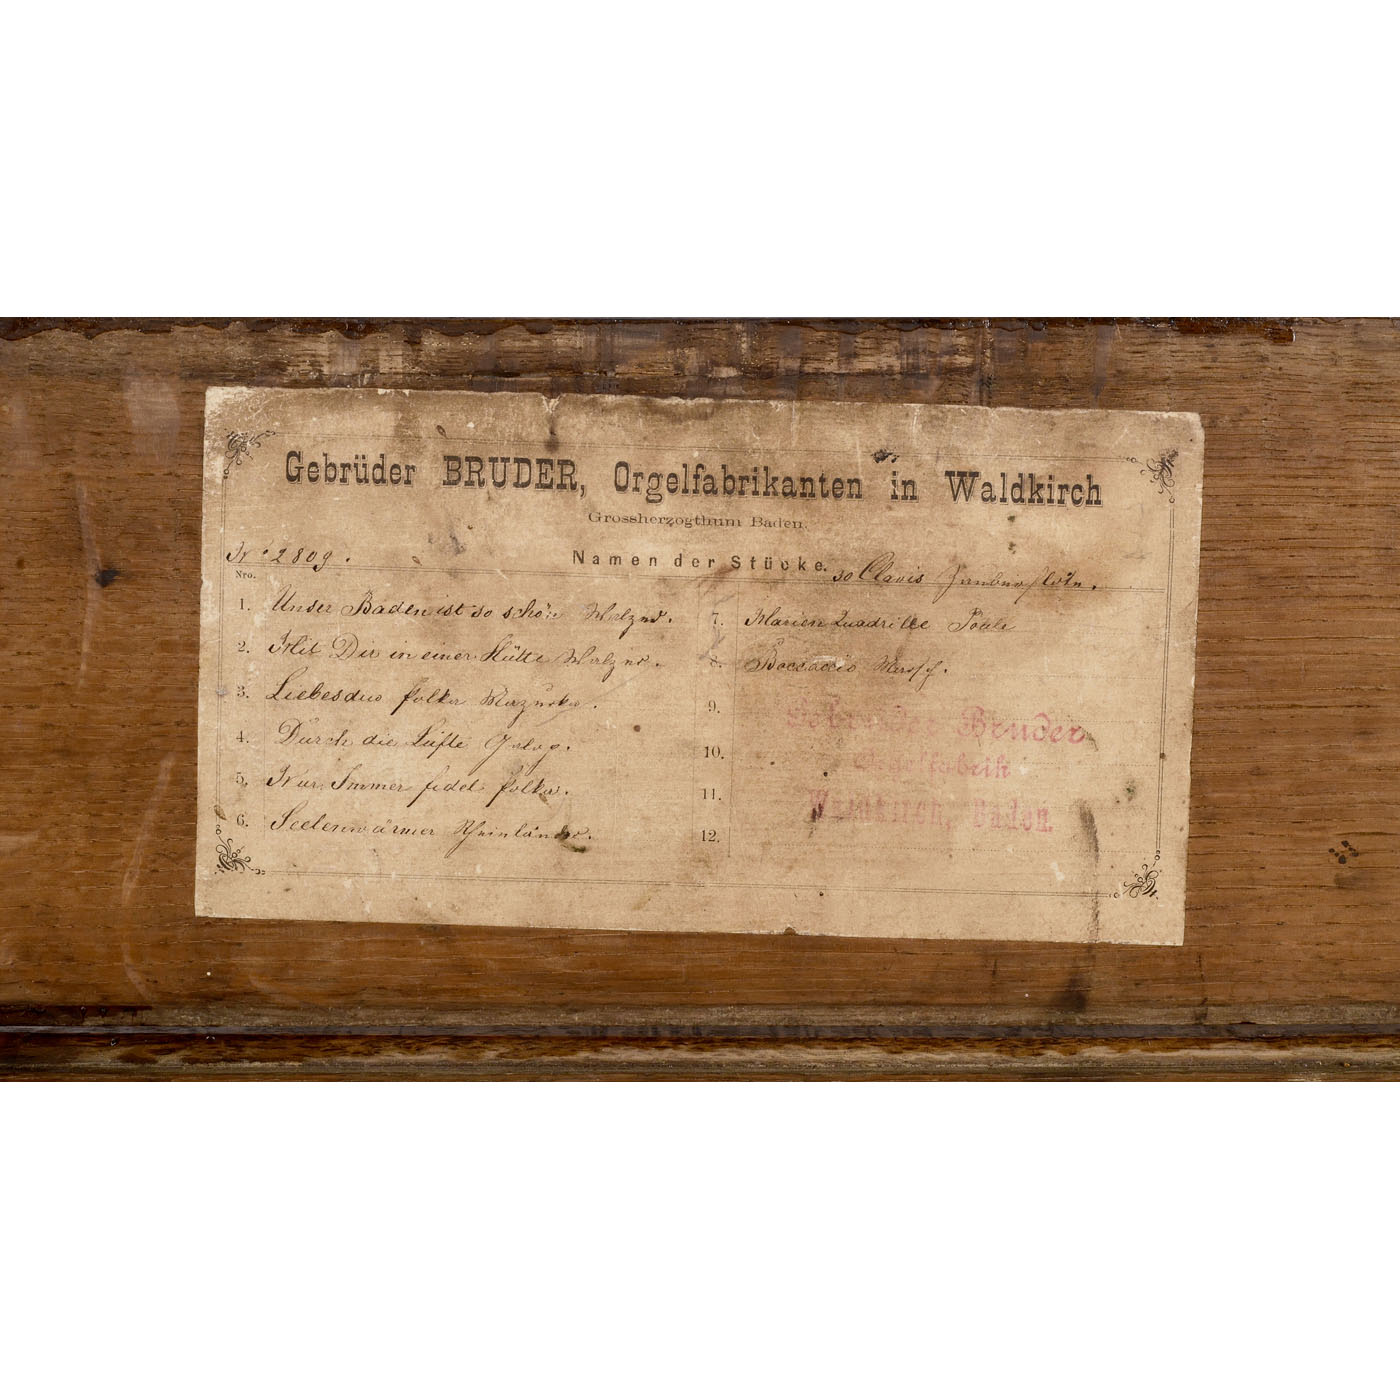 Gebrüder BRUDER, Orgelfabrikanten in Waldkirch
Grossherzogthum Baden.
Namen der Stücke.
№ 2809. 30 Clavis Zauberflöte.
Nro.
1. Unser Baden ist so schön Walzer.
2. Mit Dir in einer Hütte Walzer.
3. Liebesduo Polka Mazurka.
4. Durch die Lüfte Galop.
5. Nur Immer fidel Polka.
6. Seelenwärmer Rheinländer.
7. Marien Quadrille Poule
8. Boccaccio Marsch.
9.
10.
11.
12.
Gebrueder Bruder
Orgelfabrik
Waldkirch, Baden.